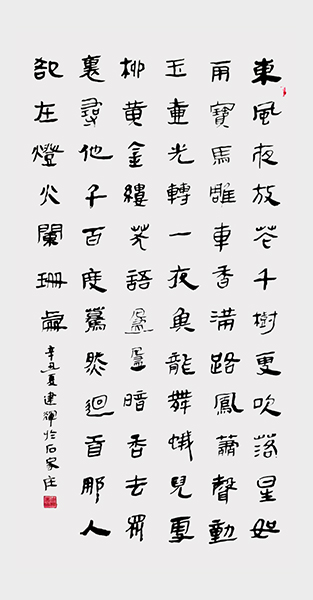 東風夜放花千樹更吹落星如
雨寶馬雕車香滿路鳳蕭聲動
玉壺光轉一夜魚龍舞蛾兒雪
柳黃金縷笑語盈盈暗香去眾
裏尋他千百度驀然迴首那人
卻在燈火闌珊處
辛丑夏建輝於石家庄